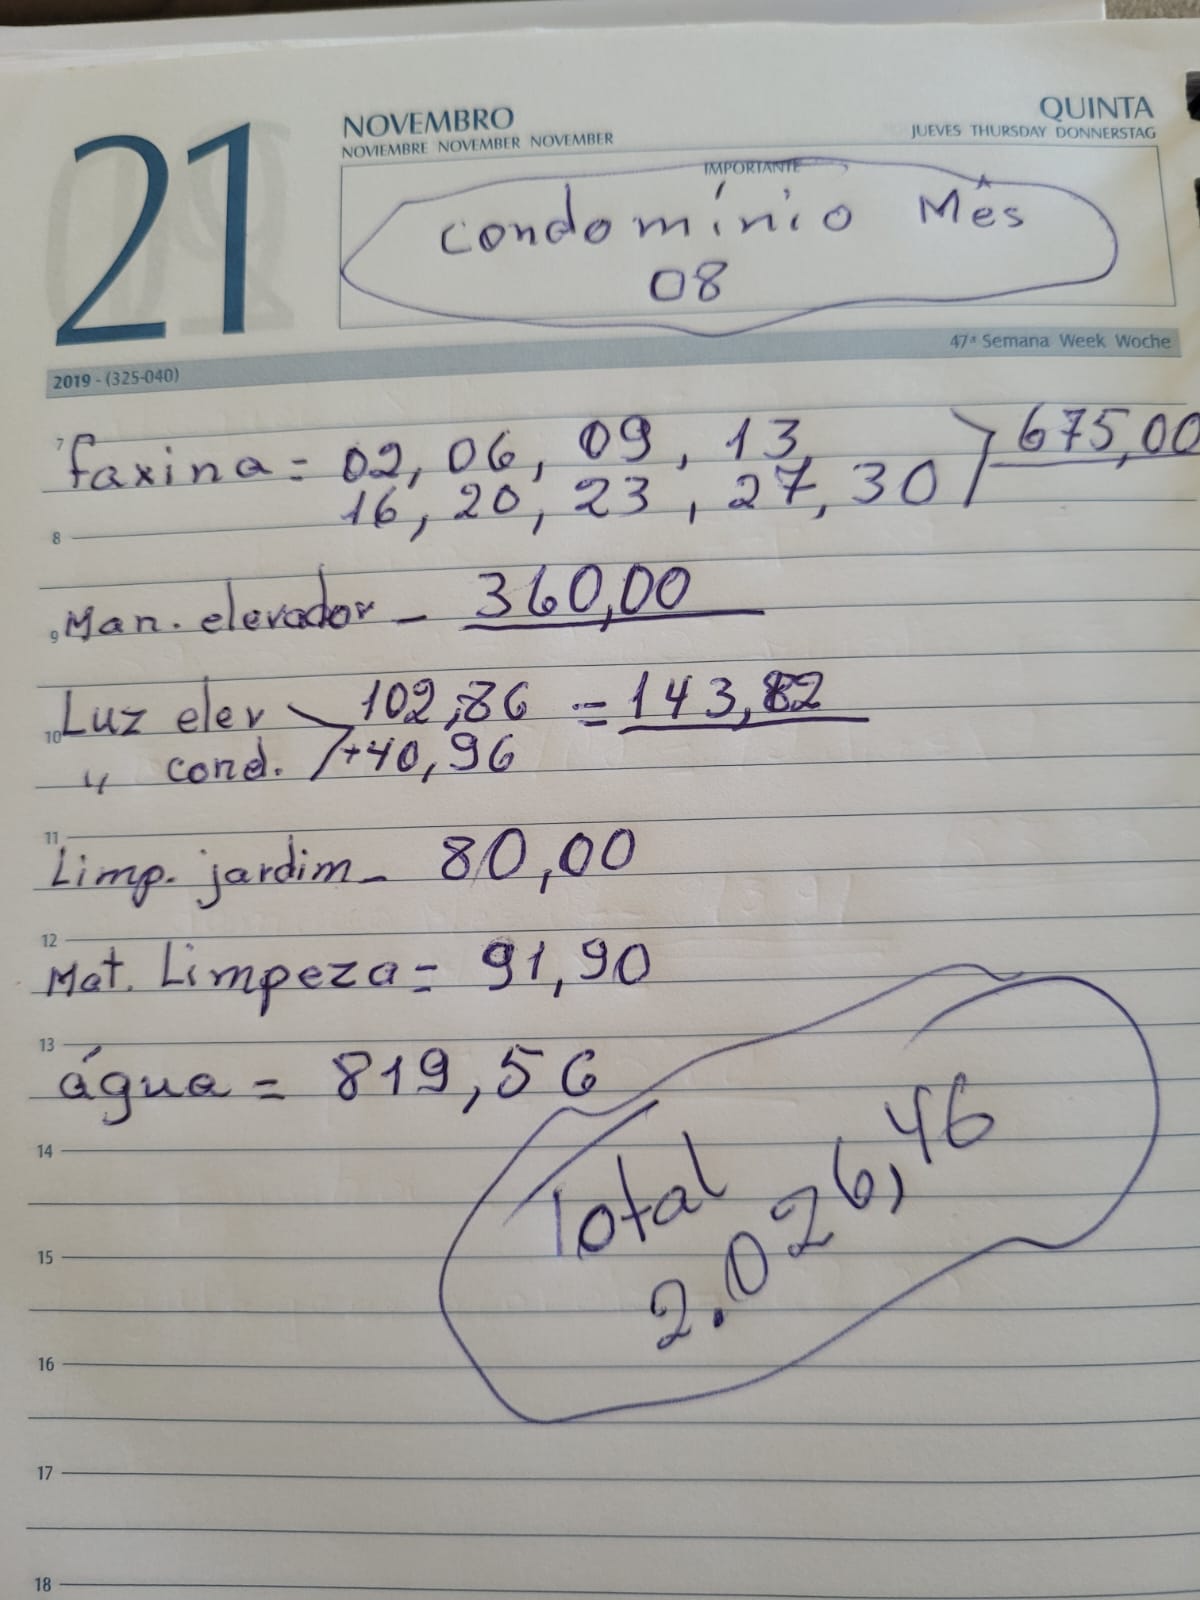 21
NOVEMBRO
NOVIEMBRE NOVEMBER NOVEMBER
QUINTA
JUEVES THURSDAY DONNERSTAG
IMPORTANTE
Condomínio Mês
08
47ª Semana Week Woche
2019 - (325-040)
7
faxina = 02, 06, 09, 13,
675,00
16, 20, 23, 27, 30
8
Man. elevador - 360,00
9
Luz elev 102,86 = 143,82
10
" cond. +40,96
11
Limp. jardim - 80,00
12
Mat. Limpeza = 91,90
13
água = 819,56
14
Total
2.026,46
15
16
17
18